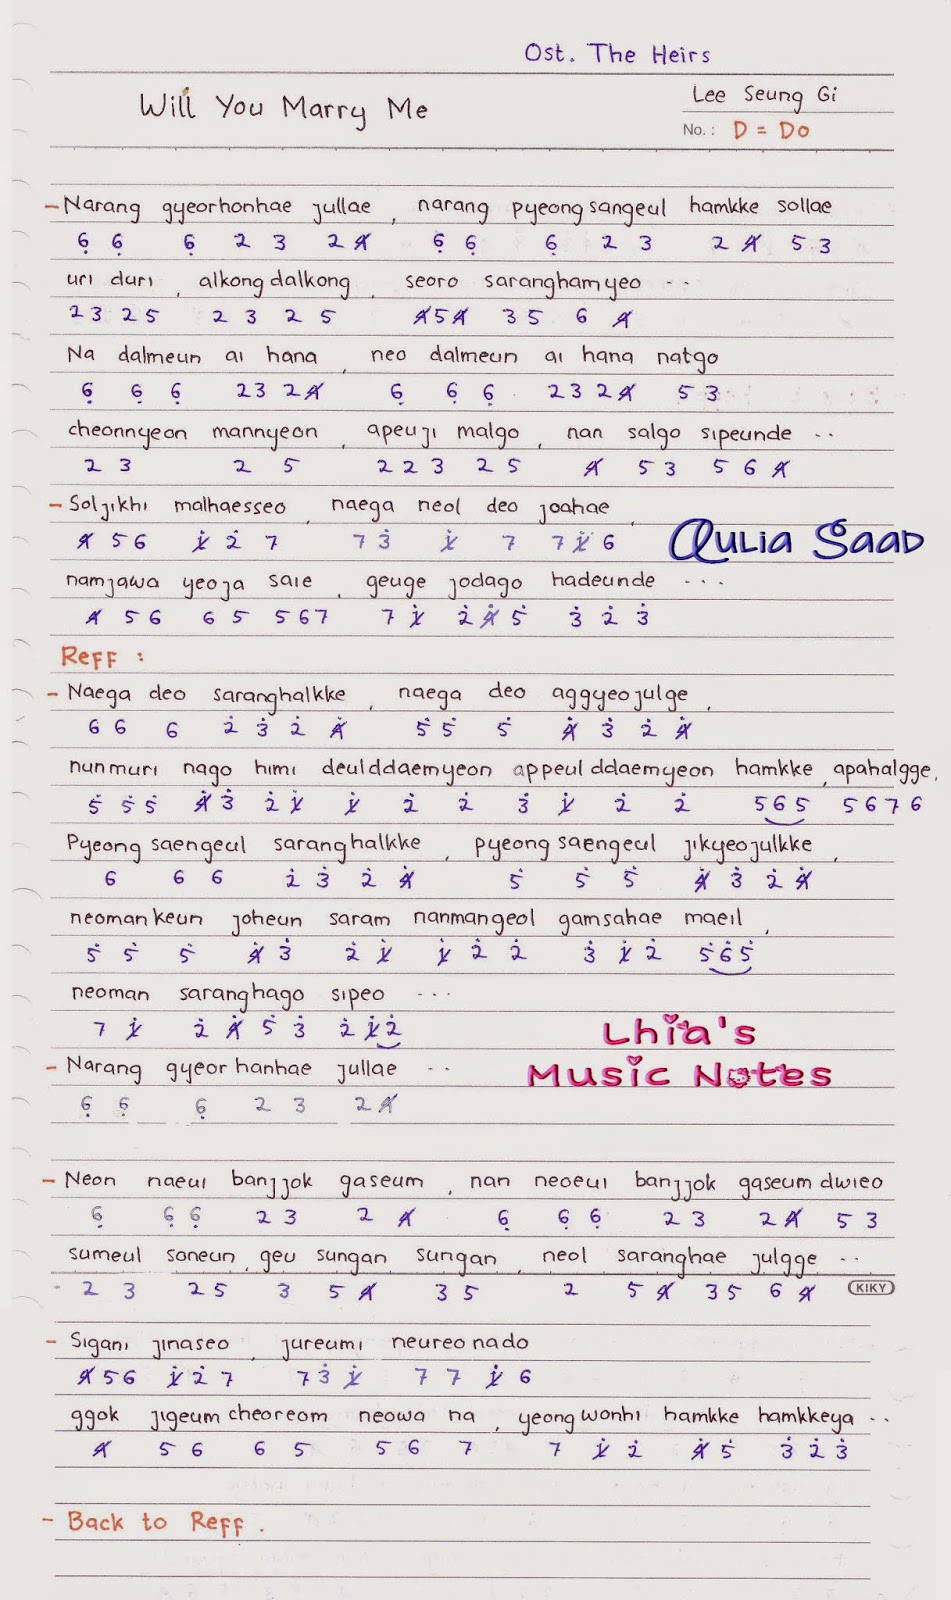 Ost. The Heirs
Will You Marry Me
Lee Seung Gi
No. : D = Do
- Narang gyeorhonhae jullae , narang pyeongsangeul hamkke sollae
6̣ 6̣ 6̣ 2 3 2 4̸ 6̣ 6̣ 6̣ 2 3 2 4̸ 5 3
uri duri , alkongdalkong , seoro saranghamyeo ..
2 3 2 5 2 3 2 5 4̸ 5 4̸ 3 5 6 4̸
Na dalmeun ai hana , neo dalmeun ai hana natgo
6̣ 6̣ 6̣ 2 3 2 4̸ 6̣ 6̣ 6̣ 2 3 2 4̸ 5 3
cheonnyeon mannyeon , apeuji malgo , nan salgo sipeunde ..
2 3 2 5 2 2 3 2 5 4̸ 5 3 5 6 4̸
- Soljikhi malhaesseo , naega neol deo joahae ,
4̸ 5 6 1̸̇ 2̇ 7 7 3̇ 1̸̇ 7 7 1̸̇ 6
Qulia Saad
namjawa yeoja saie , geuge jodago hadeunde ...
4̸ 5 6 6 5 5 6 7 7 1̸̇ 2̇ 4̸̇ 5̇ 3̇ 2̇ 3̇
Reff :
- Naega deo saranghalkke , naega deo aggyeojulge ,
6 6 6 2̇ 3̇ 2̇ 4̸̇ 5̇ 5̇ 5̇ 4̸̇ 3̇ 2̇ 4̸̇
nunmuri nago himi deulddaemyeon appeulddaemyeon hamkke , apahalgge ,
5̇ 5̇ 5̇ 4̸̇ 3̇ 2̇ 1̸̇ 1̸̇ 2̇ 2̇ 3̇ 1̸̇ 2̇ 2̇ 5 6 5 5 6 7 6
Pyeong saengeul saranghalkke , pyeong saengeul jikyeojulkke ,
6 6 6 2̇ 3̇ 2̇ 4̸̇ 5̇ 5̇ 5̇ 4̸̇ 3̇ 2̇ 4̸̇
neoman keun joheun saram nanmangeol gamsahae maeil ,
5̇ 5̇ 5̇ 4̸̇ 3̇ 2̇ 1̸̇ 1̸̇ 2̇ 2̇ 3̇ 1̸̇ 2̇ 5̇ 6̇ 5̇
neoman saranghago sipeo ...
7 1̸̇ 2̇ 4̸̇ 5̇ 3̇ 2̇ 1̸̇ 2̇
Lhia's
Music Notes
- Narang gyeorhanhae jullae ..
6̣ 6̣ 6̣ 2 3 2 4̸
- Neon naeui banjjok gaseum , nan neoeui banjjok gaseum dwieo
6̣ 6̣ 6̣ 2 3 2 4̸ 6̣ 6̣ 6̣ 2 3 2 4̸ 5 3
sumeul soneun , geu sungan sungan , neol saranghae julgge ..
2 3 2 5 3 5 4̸ 3 5 2 5 4̸ 3 5 6 4̸
KIKY
- Sigani jinaseo , jureumi neureonado
4̸ 5 6 1̸̇ 2̇ 7 7 3̇ 1̸̇ 7 7 1̸̇ 6
ggok jigeum cheoreom neowa na , yeongwonhi hamkke hamkkeya ..
4̸ 5 6 6 5 5 6 7 7 1̸̇ 2̇ 4̸̇ 5̇ 3̇ 2̇ 3̇
- Back to Reff .